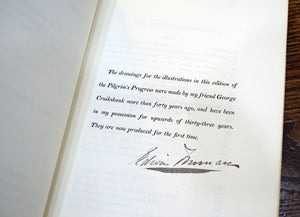 The drawings for the illustrations in this edition of
the Pilgrim's Progress were made by my friend George
Cruikshank more than forty years ago, and have been
in my possession for upwards of thirty-three years.
They are now produced for the first time.
Edwin Truman